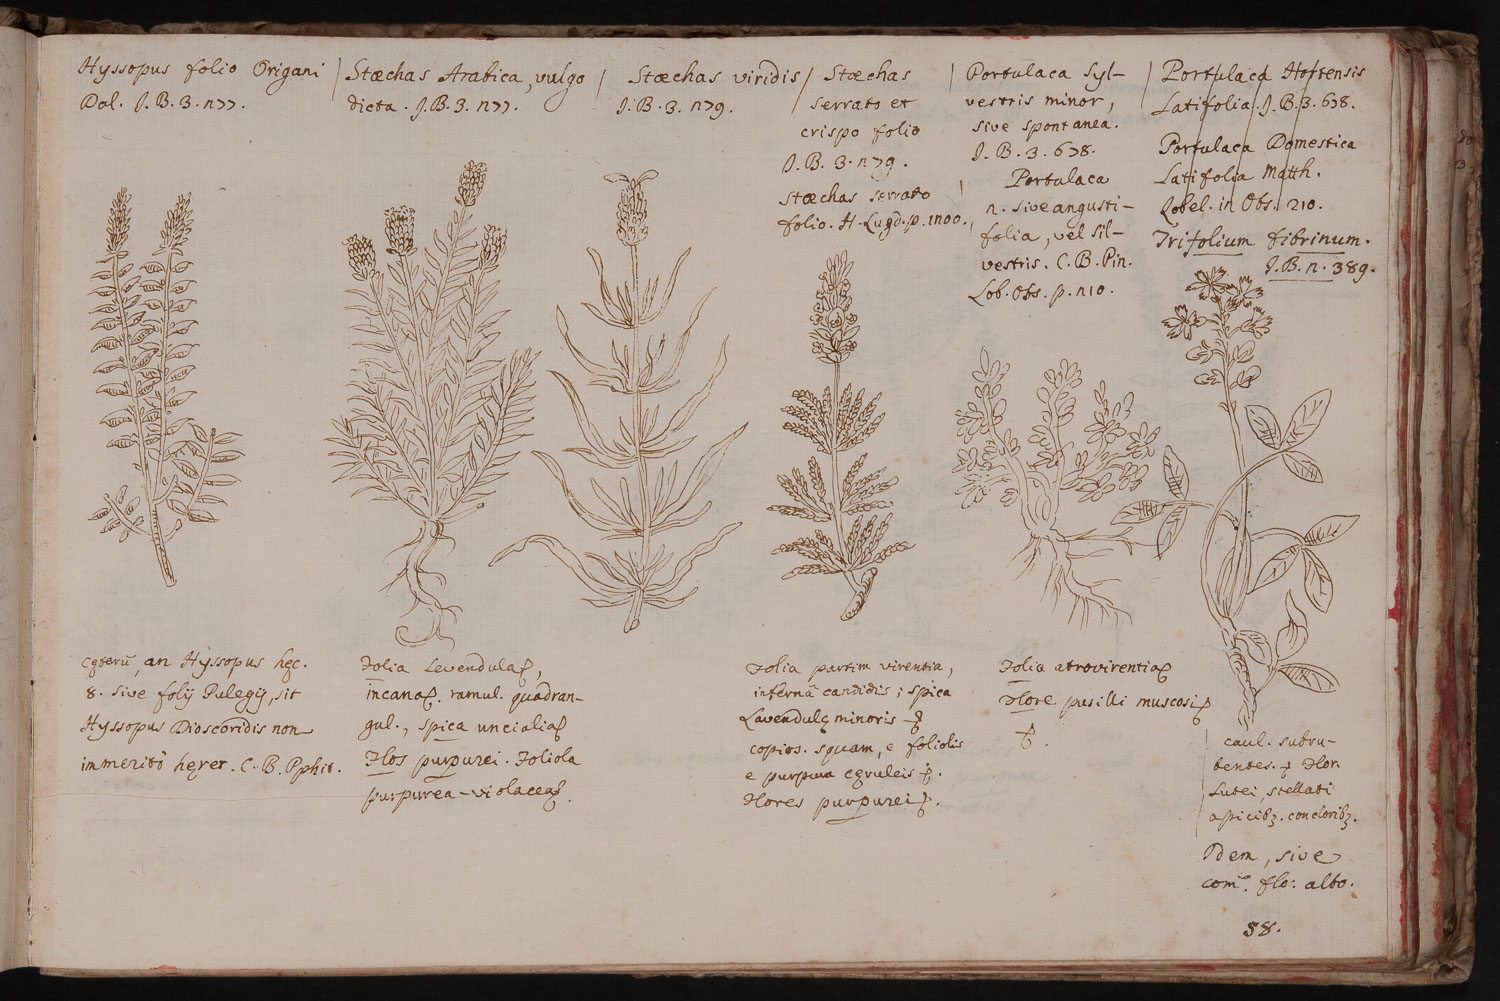 Hyssopus folio Origani
Dal. J.B.3. n77.
Stœchas Arabica, vulgo
dicta. J.B.3. n77.
Stœchas viridis
J.B.3. n79.
Stœchas
serrato et
crispo folio
J.B.3. n79.
Stœchas serrato
folio. H. Lugd. p. 1100.
Portulaca syl-
vestris minor,
sive spontanea.
J.B.3.678.
Portulaca
n. sive angusti-
folia, vel sil-
vestris. C.B. Pin.
Lob. Obs. p. n10.
Portulaca Hortensis
Latifolia. J.B.3.678.
Portulaca Domestica
Latifolia Matth.
Lobel. in Obs. 210.
Trifolium fibrinum.
J.B. n. 389.
Cęterū, an Hyssopus hęc.
8. sive folij Pulegij, sit
Hyssopus Dioscoridis non
immeritò hęret. C.B. Pphit.
Folia Levendulaȩ,
incanaȩ. ramul. quadran-
gul., spica uncialiaȩ
Flos purpurei. Foliola
purpurea-violaceaȩ.
Folia partim virentia,
infernā candidis; spica
Lavendulę minoris
copios. squam, e foliolis
e purpura cęruleis
Flores purpurei
Folia atrovirentiaȩ
Flore pusilli muscosi
caul. subru-
bentes. Flor.
Lutei, stellati
apicibȝ. concloribȝ.
Idem, sive
com̃. flo: albo.
58.